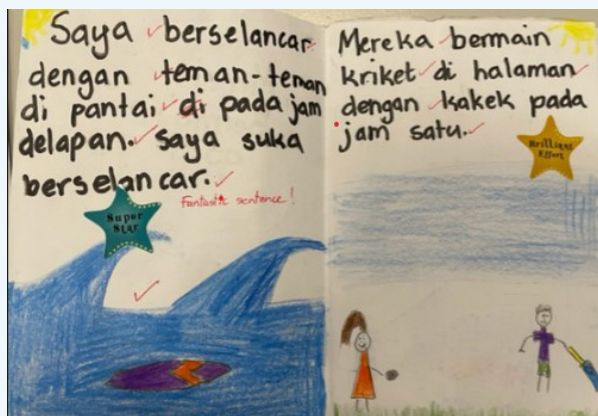 Saya berselancar
dengan teman-teman
di pantai di pada jam
delapan. saya suka
berselancar.
Fantastic sentence!
Super
Star
Mereka bermain
kriket di halaman
dengan kakek pada
jam satu.
Brilliant
Effort